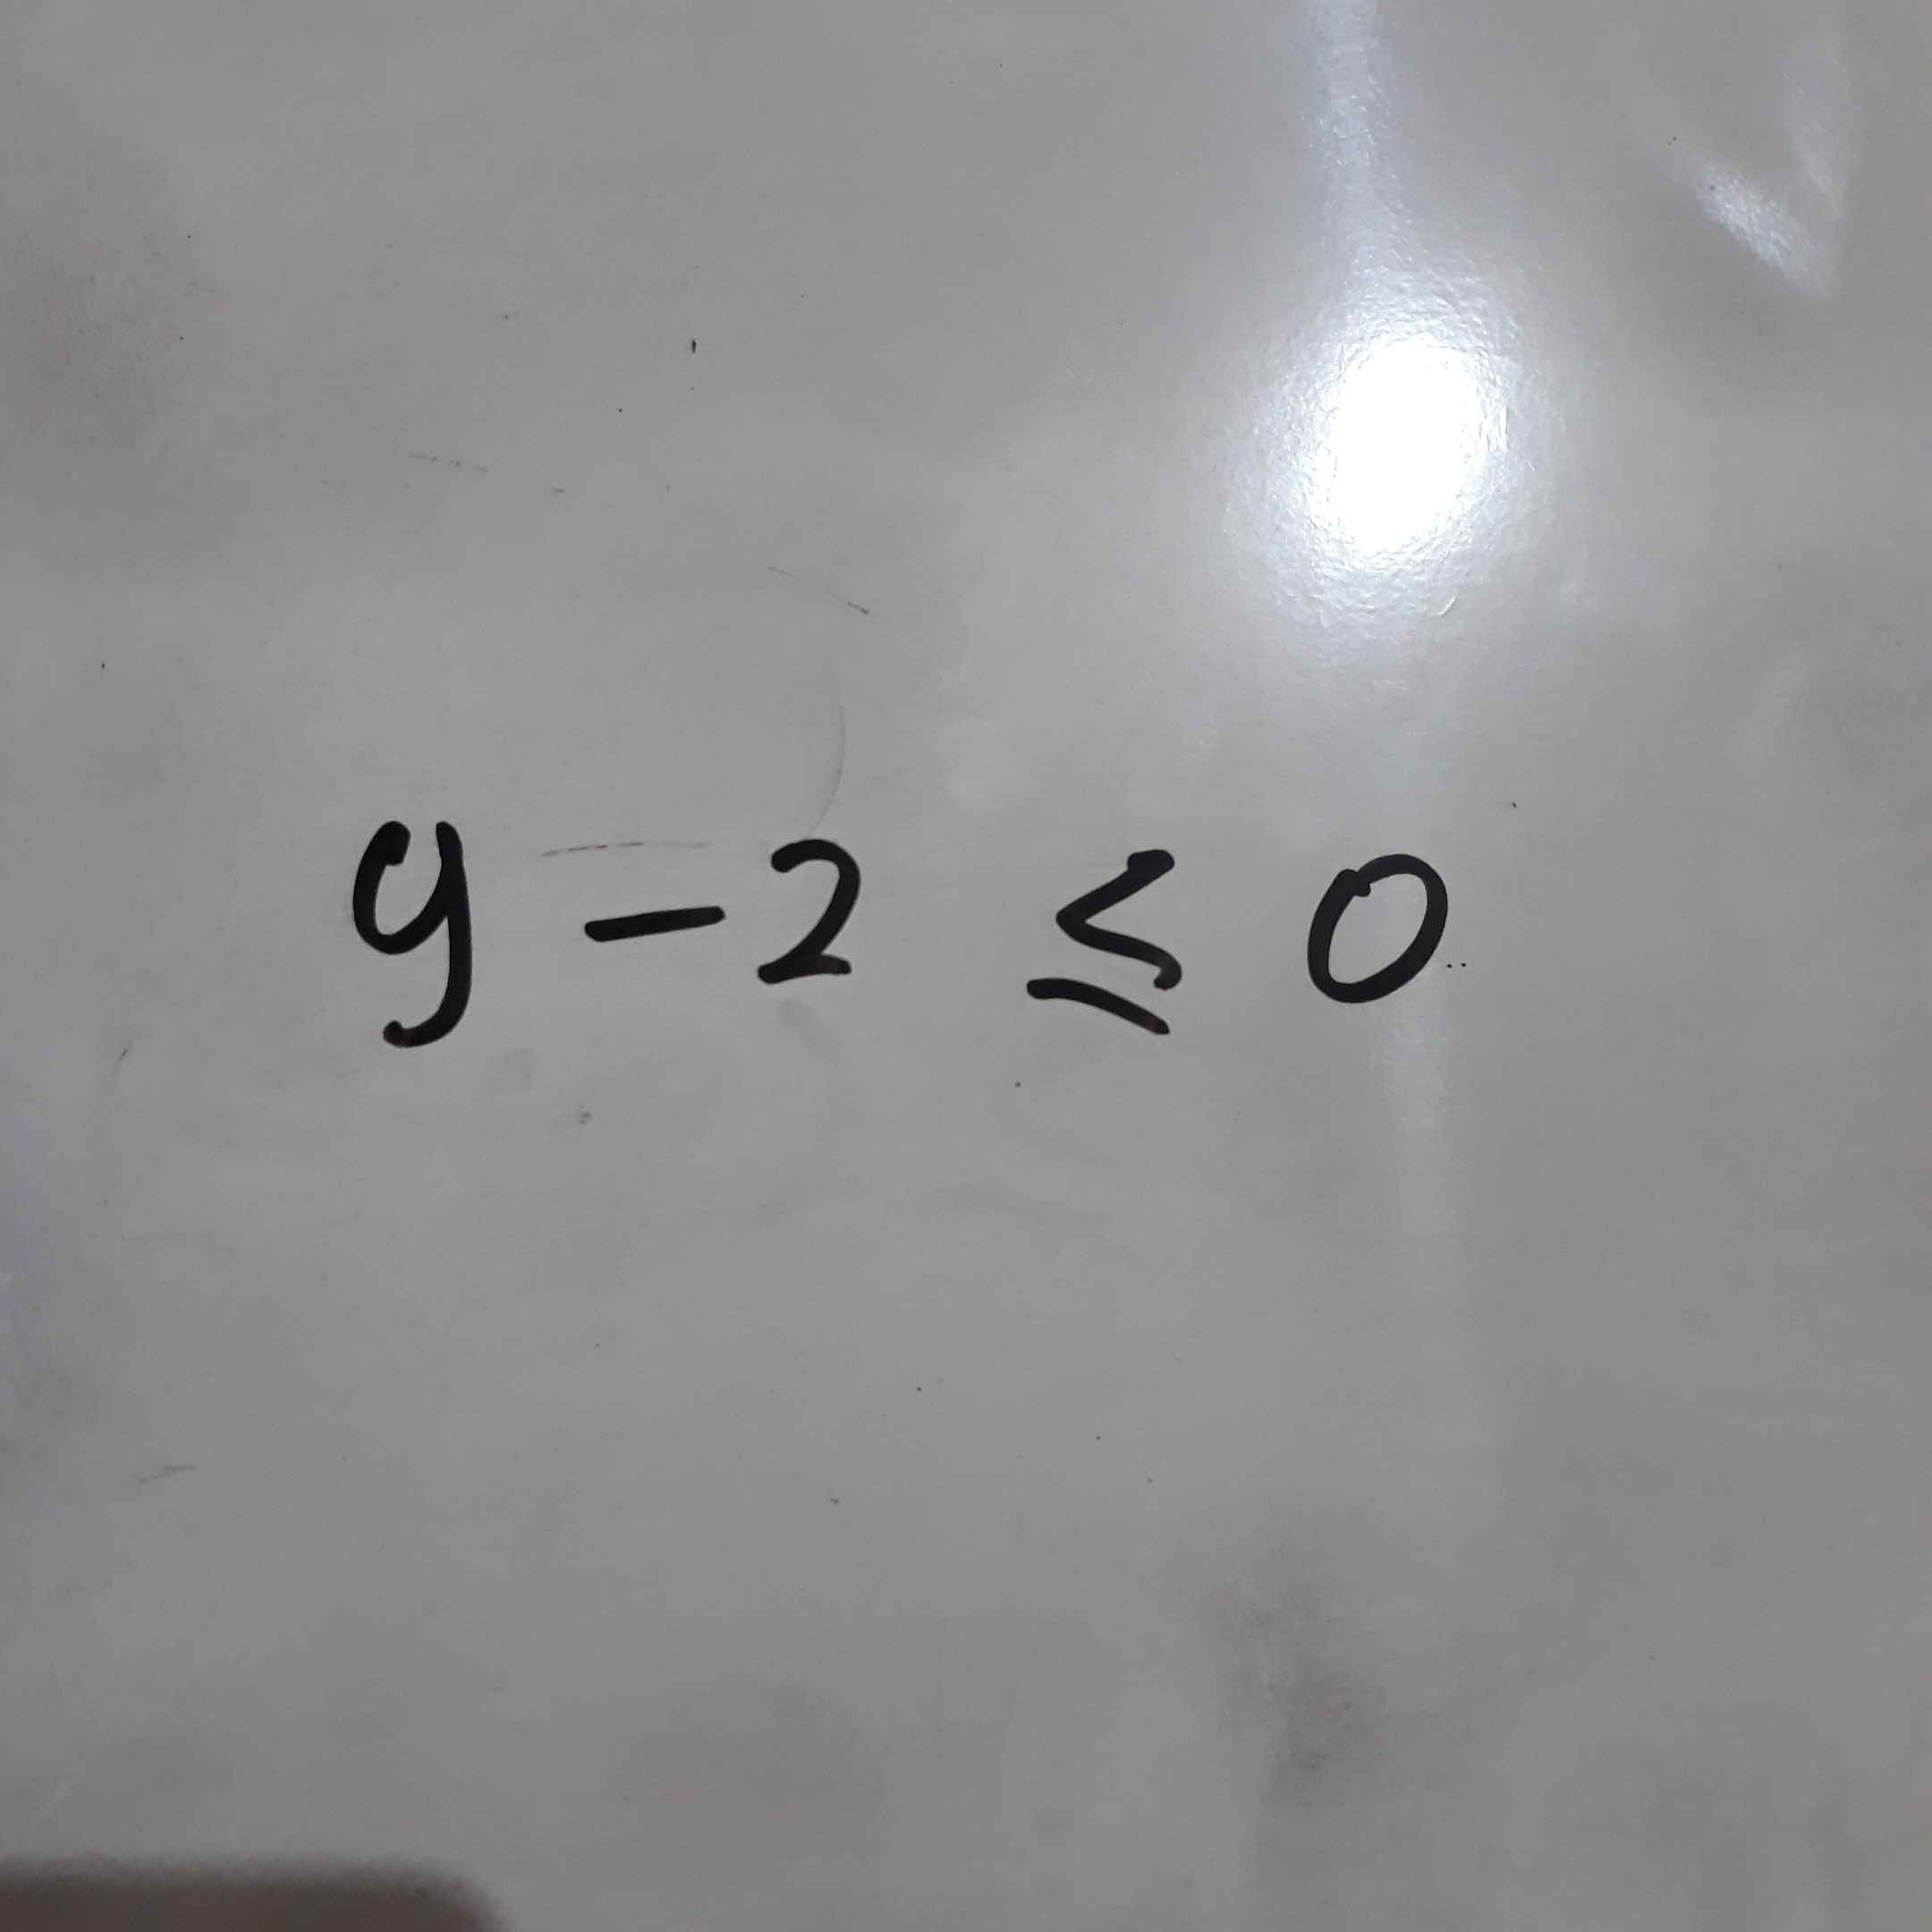 y - 2 ≤ 0